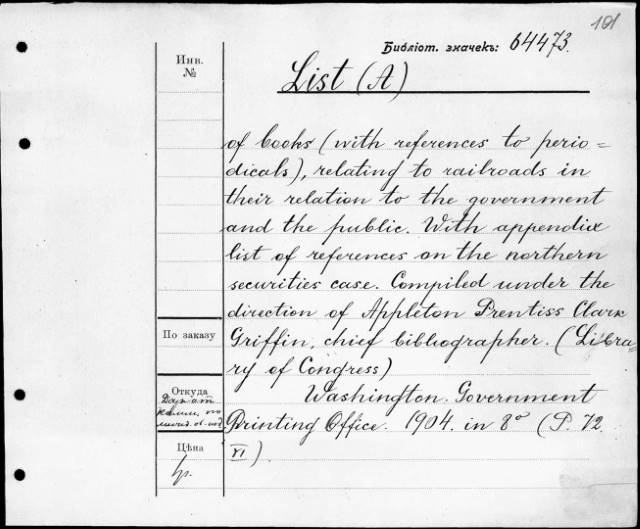 101
Библіот. значекъ: 64473.
Инв.
№
List (A)
of books (with references to perio=
dicals), relating to railroads in
their relation to the government
and the public. With appendix
list of references on the northern
securities case. Compiled under the
direction of Appleton Prentiss Clark
Griffin, chief bibliographer. (Libra=
ry of Congress)
Washington. Government
Printing Office. 1904. in 8º (P. 72
VI).
По заказу
Откуда
Цѣна